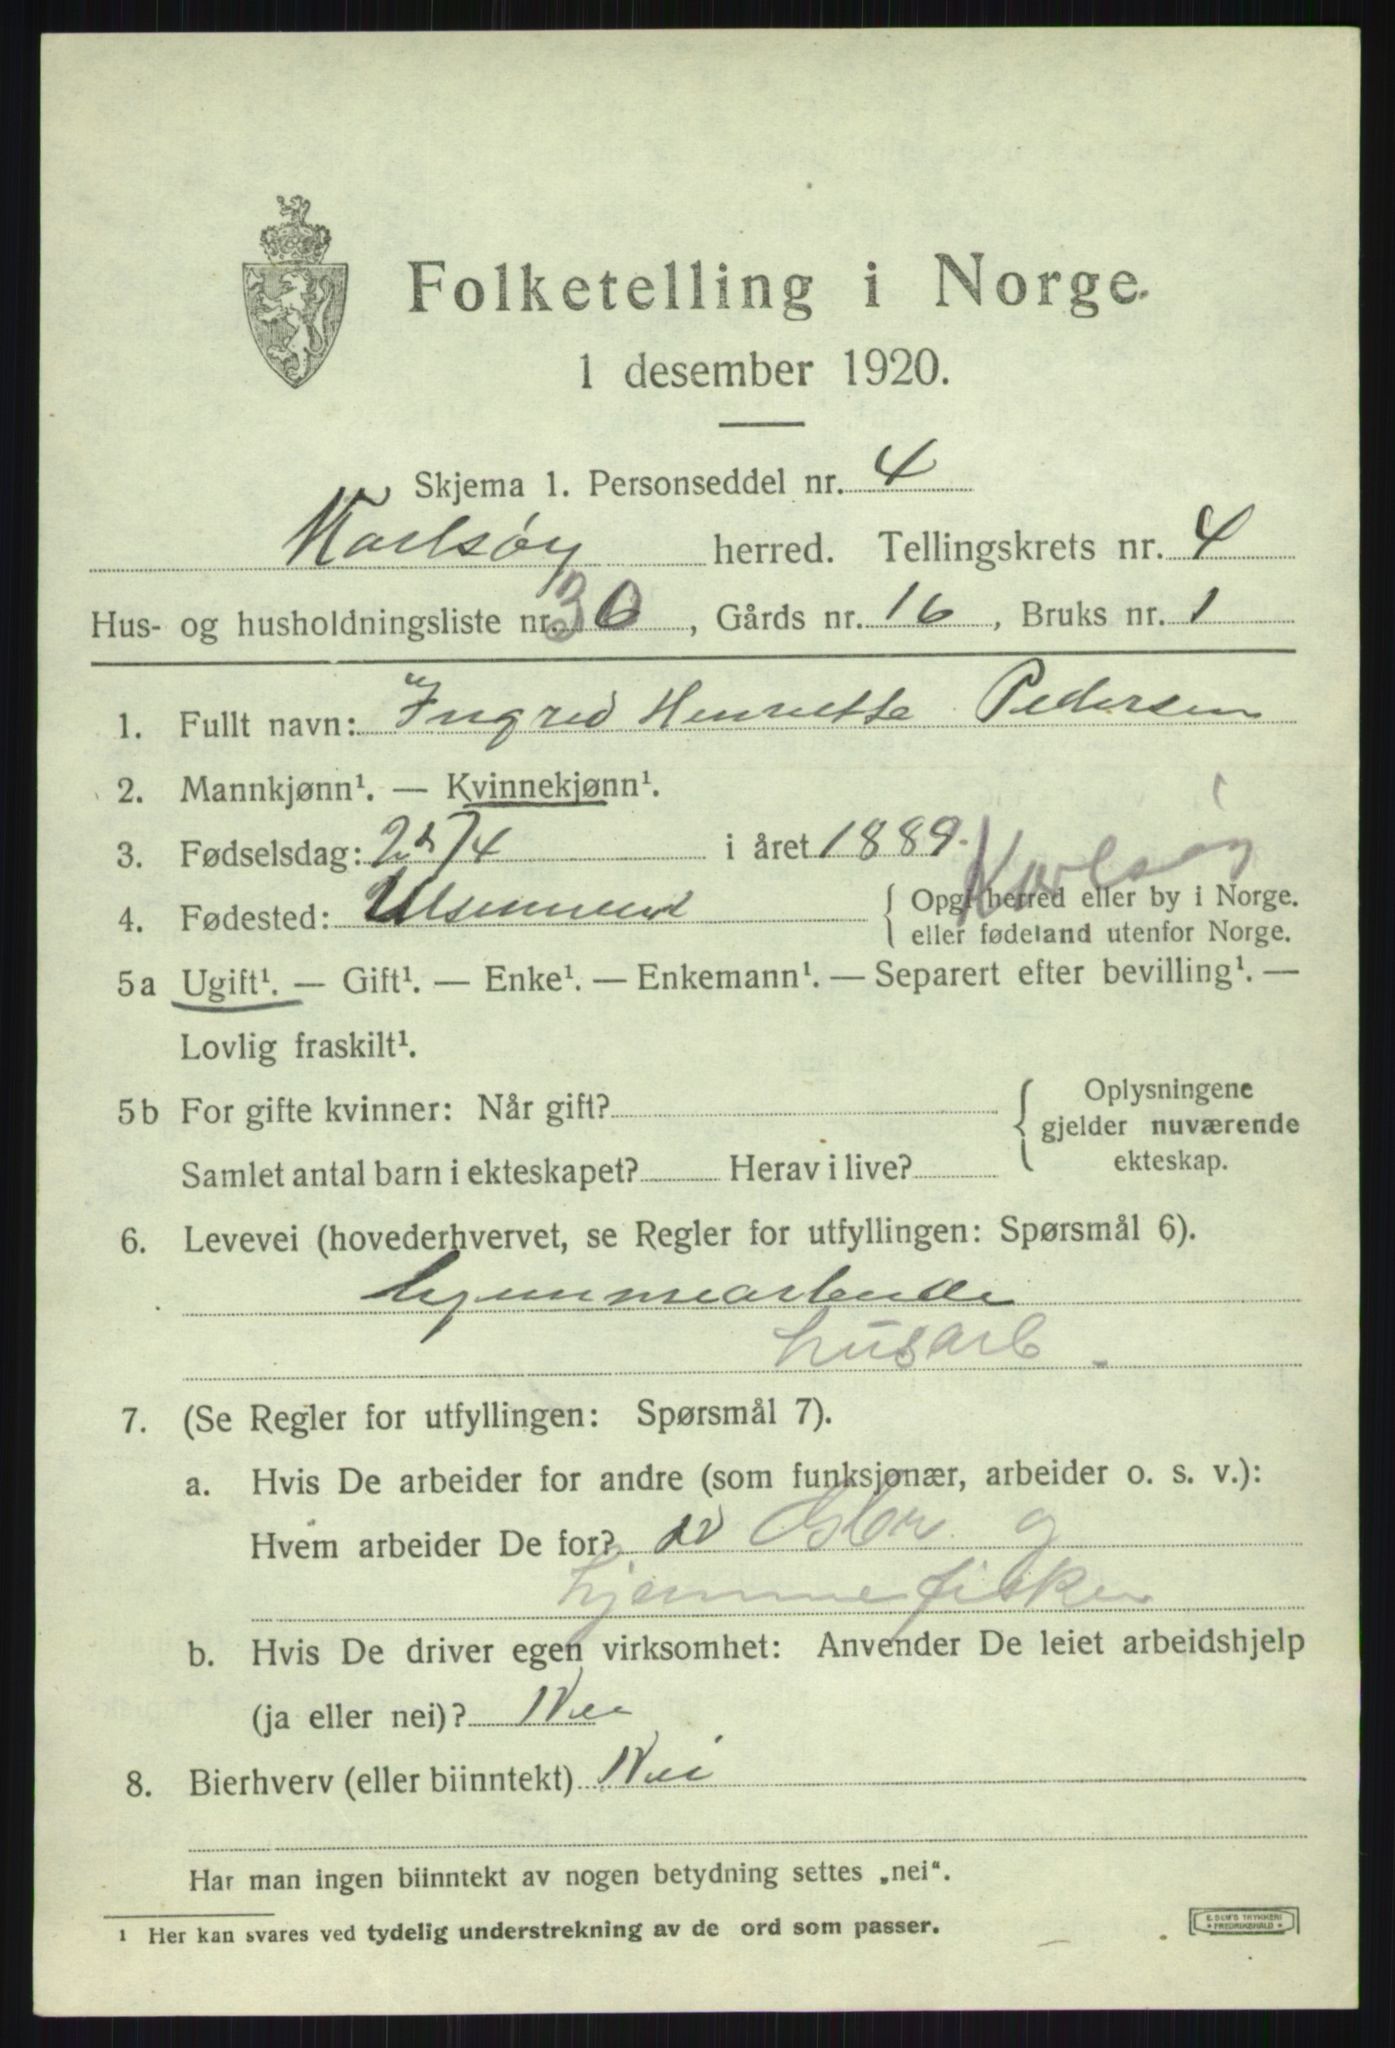 Folketelling i Norge.
1 desember 1920.
Skjema 1. Personseddel nr. 4
Karlsøy herred. Tellingskrets nr. 4
Hus- og husholdningsliste nr. 30, Gårds nr. 16, Bruks nr. 1
1. Fullt navn: Ingrid Henriette Pedersen
2. Mannkjønn¹. — Kvinnekjønn¹.
3. Fødselsdag: 4 i året 1889. Karlsøy
4. Fødested: { Opgi herred eller by i Norge.
eller fødeland utenfor Norge.
5a Ugift¹. — Gift¹. — Enke¹. — Enkemann¹. — Separert efter bevilling¹. —
Lovlig fraskilt¹.
5b For gifte kvinner: Når gift? { Oplysningene
gjelder nuværende
Samlet antal barn i ekteskapet? Herav i live? ekteskap.
6. Levevei (hovederhvervet, se Regler for utfyllingen: Spørsmål 6).
hjemmearbeide
husarb.
7. (Se Regler for utfyllingen: Spørsmål 7).
a. Hvis De arbeider for andre (som funksjonær, arbeider o. s. v.):
Hvem arbeider De for? g
hjemmefisker
b. Hvis De driver egen virksomhet: Anvender De leiet arbeidshjelp
(ja eller nei)? Nei
8. Bierhverv (eller biinntekt) Nei
Har man ingen biinntekt av nogen betydning settes „nei“.
¹ Her kan svares ved tydelig understrekning av de ord som passer.
E. SEM'S TRYKKERI
FREDRIKSHALD